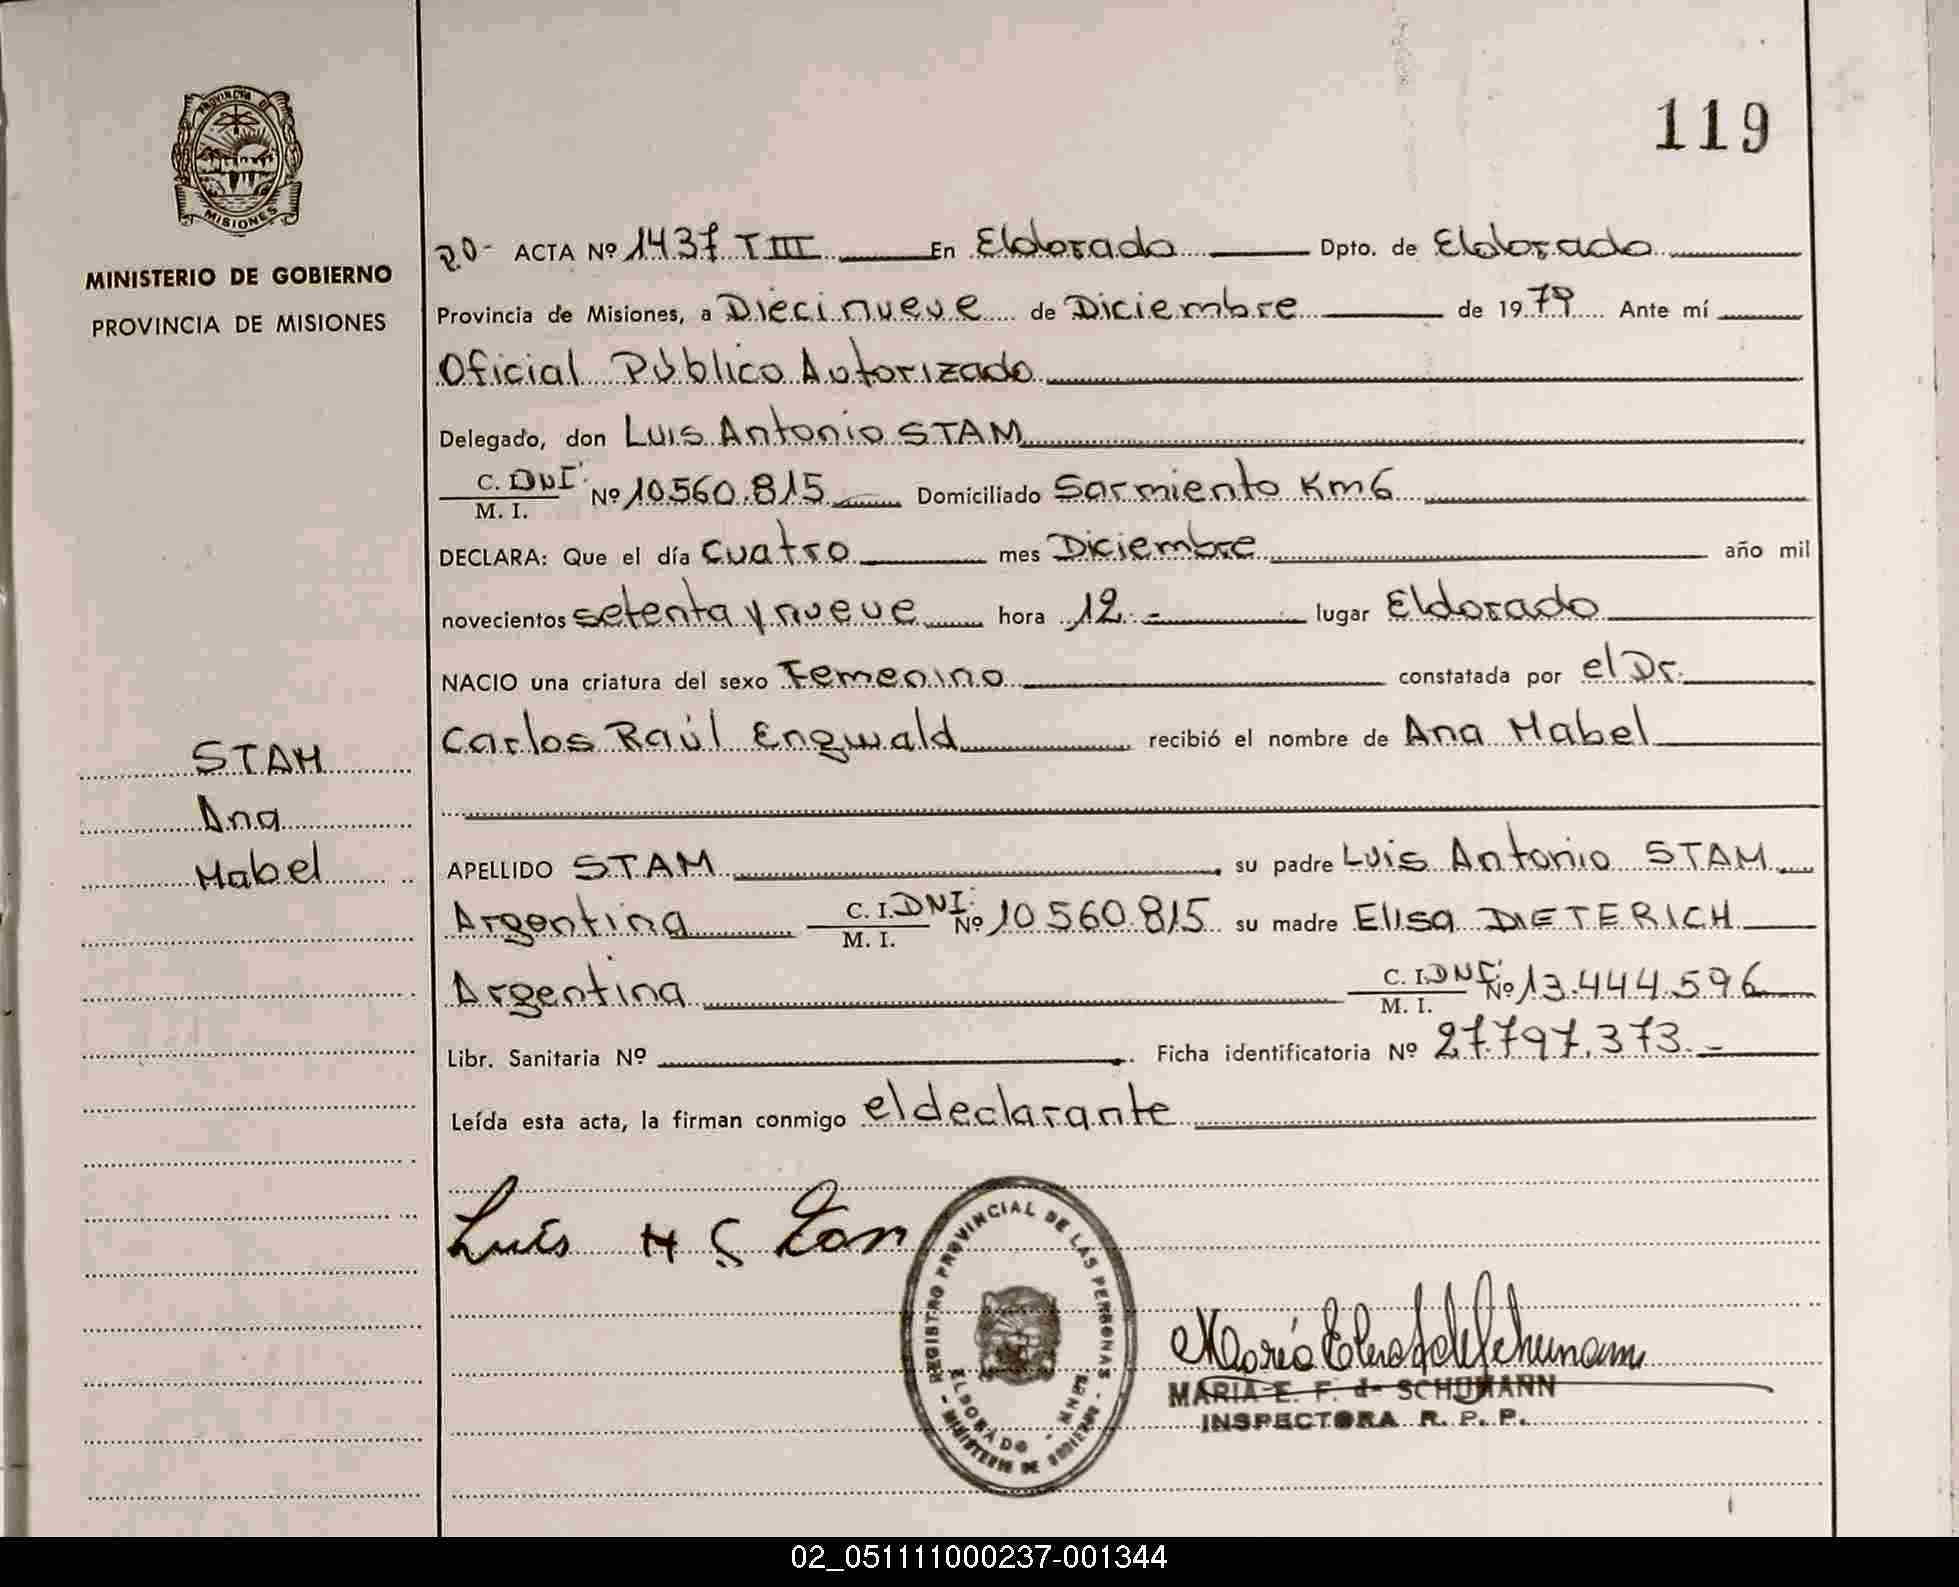 119
PROVINCIA DE
MISIONES
MINISTERIO DE GOBIERNO
PROVINCIA DE MISIONES
STAM
Ana
Mabel
20- ACTA Nº 1437 T III En Eldorado Dpto. de Eldorado
Provincia de Misiones, a Diecinueve de Diciembre de 1979 Ante mí
Oficial Público Autorizado
Delegado, don Luis Antonio STAM
C. DNI. M. I. Nº 10.560.815 Domiciliado Sarmiento Km6
DECLARA: Que el día cuatro mes Diciembre año mil
novecientos setenta y nueve hora 12.- lugar Eldorado
NACIO una criatura del sexo Femenino constatada por el Dr.
Carlos Raúl Engwald recibió el nombre de Ana Mabel
APELLIDO STAM su padre Luis Antonio STAM
Argentina C. I. DNI. M. I. Nº 10.560.815 su madre Elisa DIETERICH
Argentina C. I. DNI. M. I. Nº 13.444.596
Libr. Sanitaria Nº Ficha identificatoria Nº 27.797.373.-
Leída esta acta, la firman conmigo el declarante
Luis
REGISTRO PROVINCIAL DE LAS PERSONAS
ELDORADO - MNES.
- MINISTERIO DE GOBIERNO -
MARIA E. F. de SCHUMANN
INSPECTORA R. P. P.
02_051111000237-001344